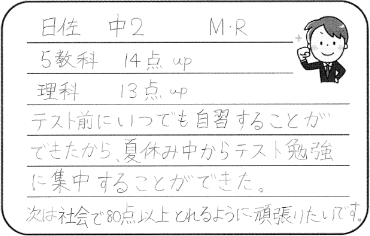 日佐 中2 M・R
5教科 14点up
理科 13点up
テスト前にいつでも自習することが
できたから、夏休み中からテスト勉強
に集中することができた。
次は社会で80点以上とれるように頑張りたいです。